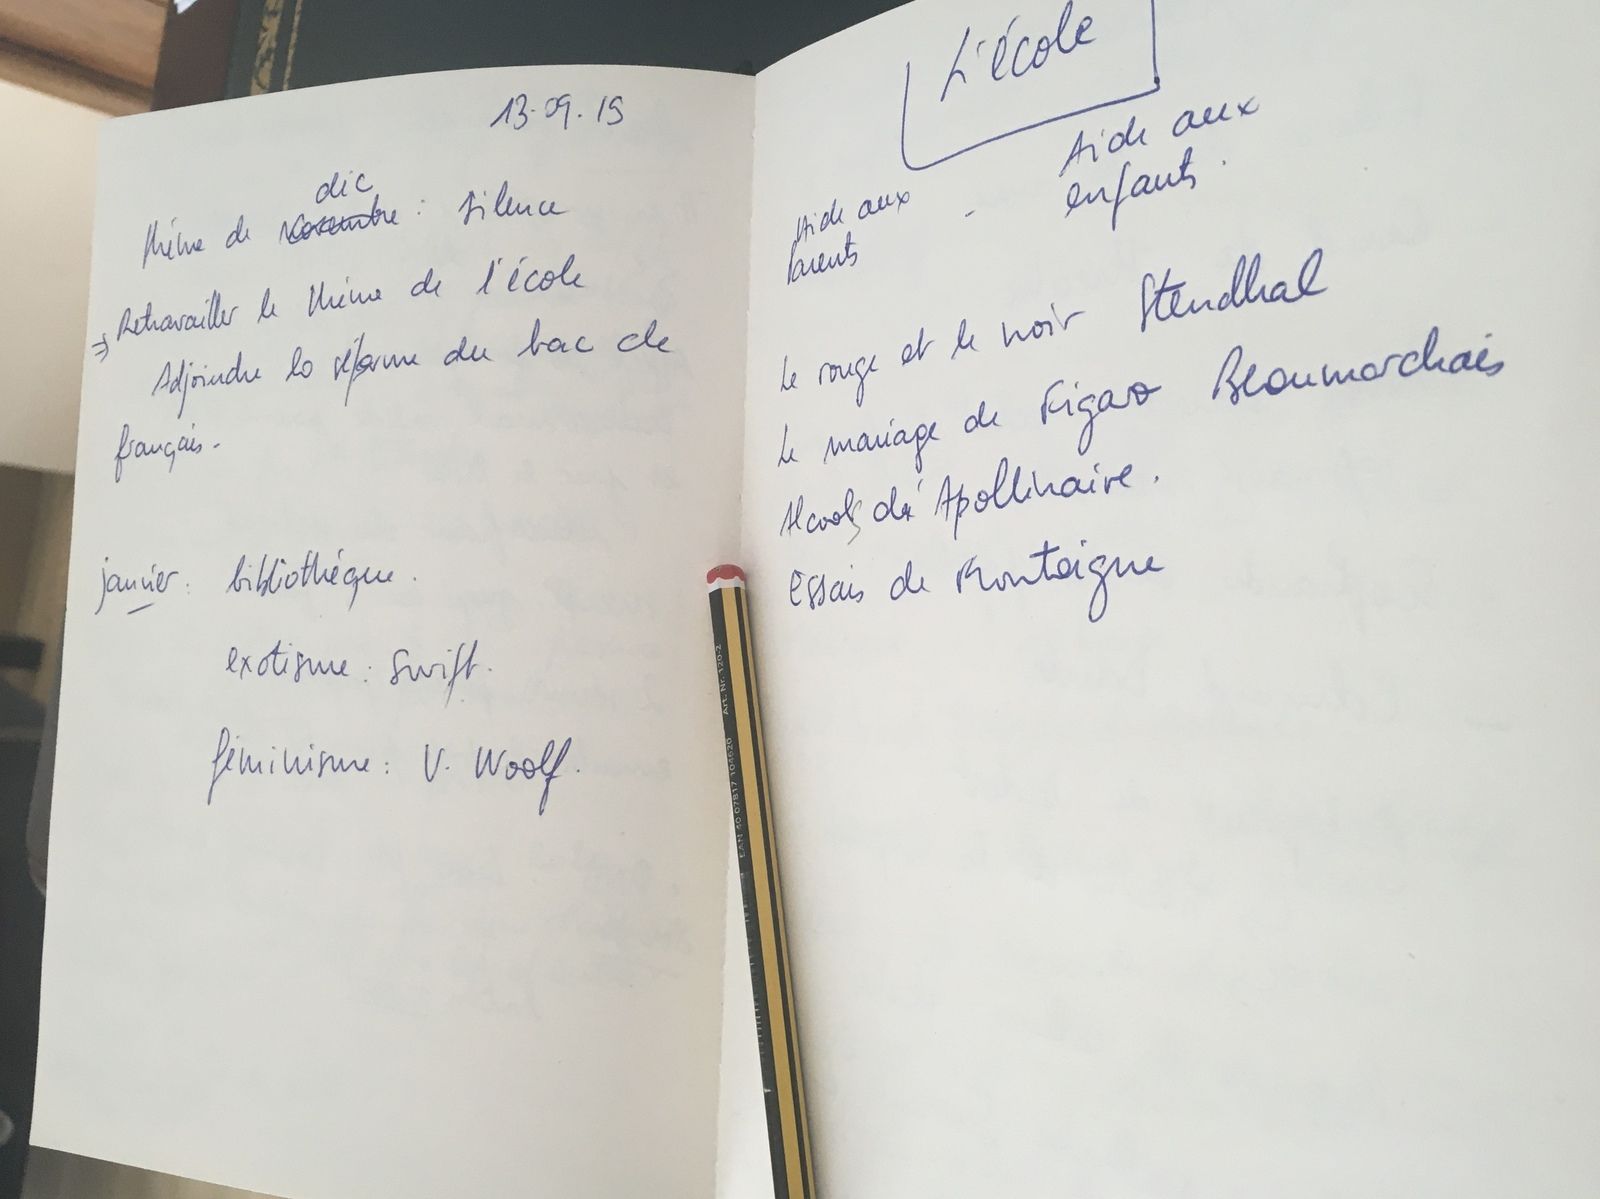 13.09.19
dic
Thème de Novembre : Silence
⇒ Retravailler le thème de l'école
Adjoindre la réforme du bac de
français.
janvier : bibliothèque.
exotisme : Swift.
féminisme : V. Woolf.
L'école
Aide aux
parents
-
Aide aux
enfants.
Le rouge et le noir Stendhal
Le mariage de Figaro Beaumarchais
Alcools d'Apollinaire.
Essais de Montaigne
Art. Nr. 120-2
EAN 40 07817 104620